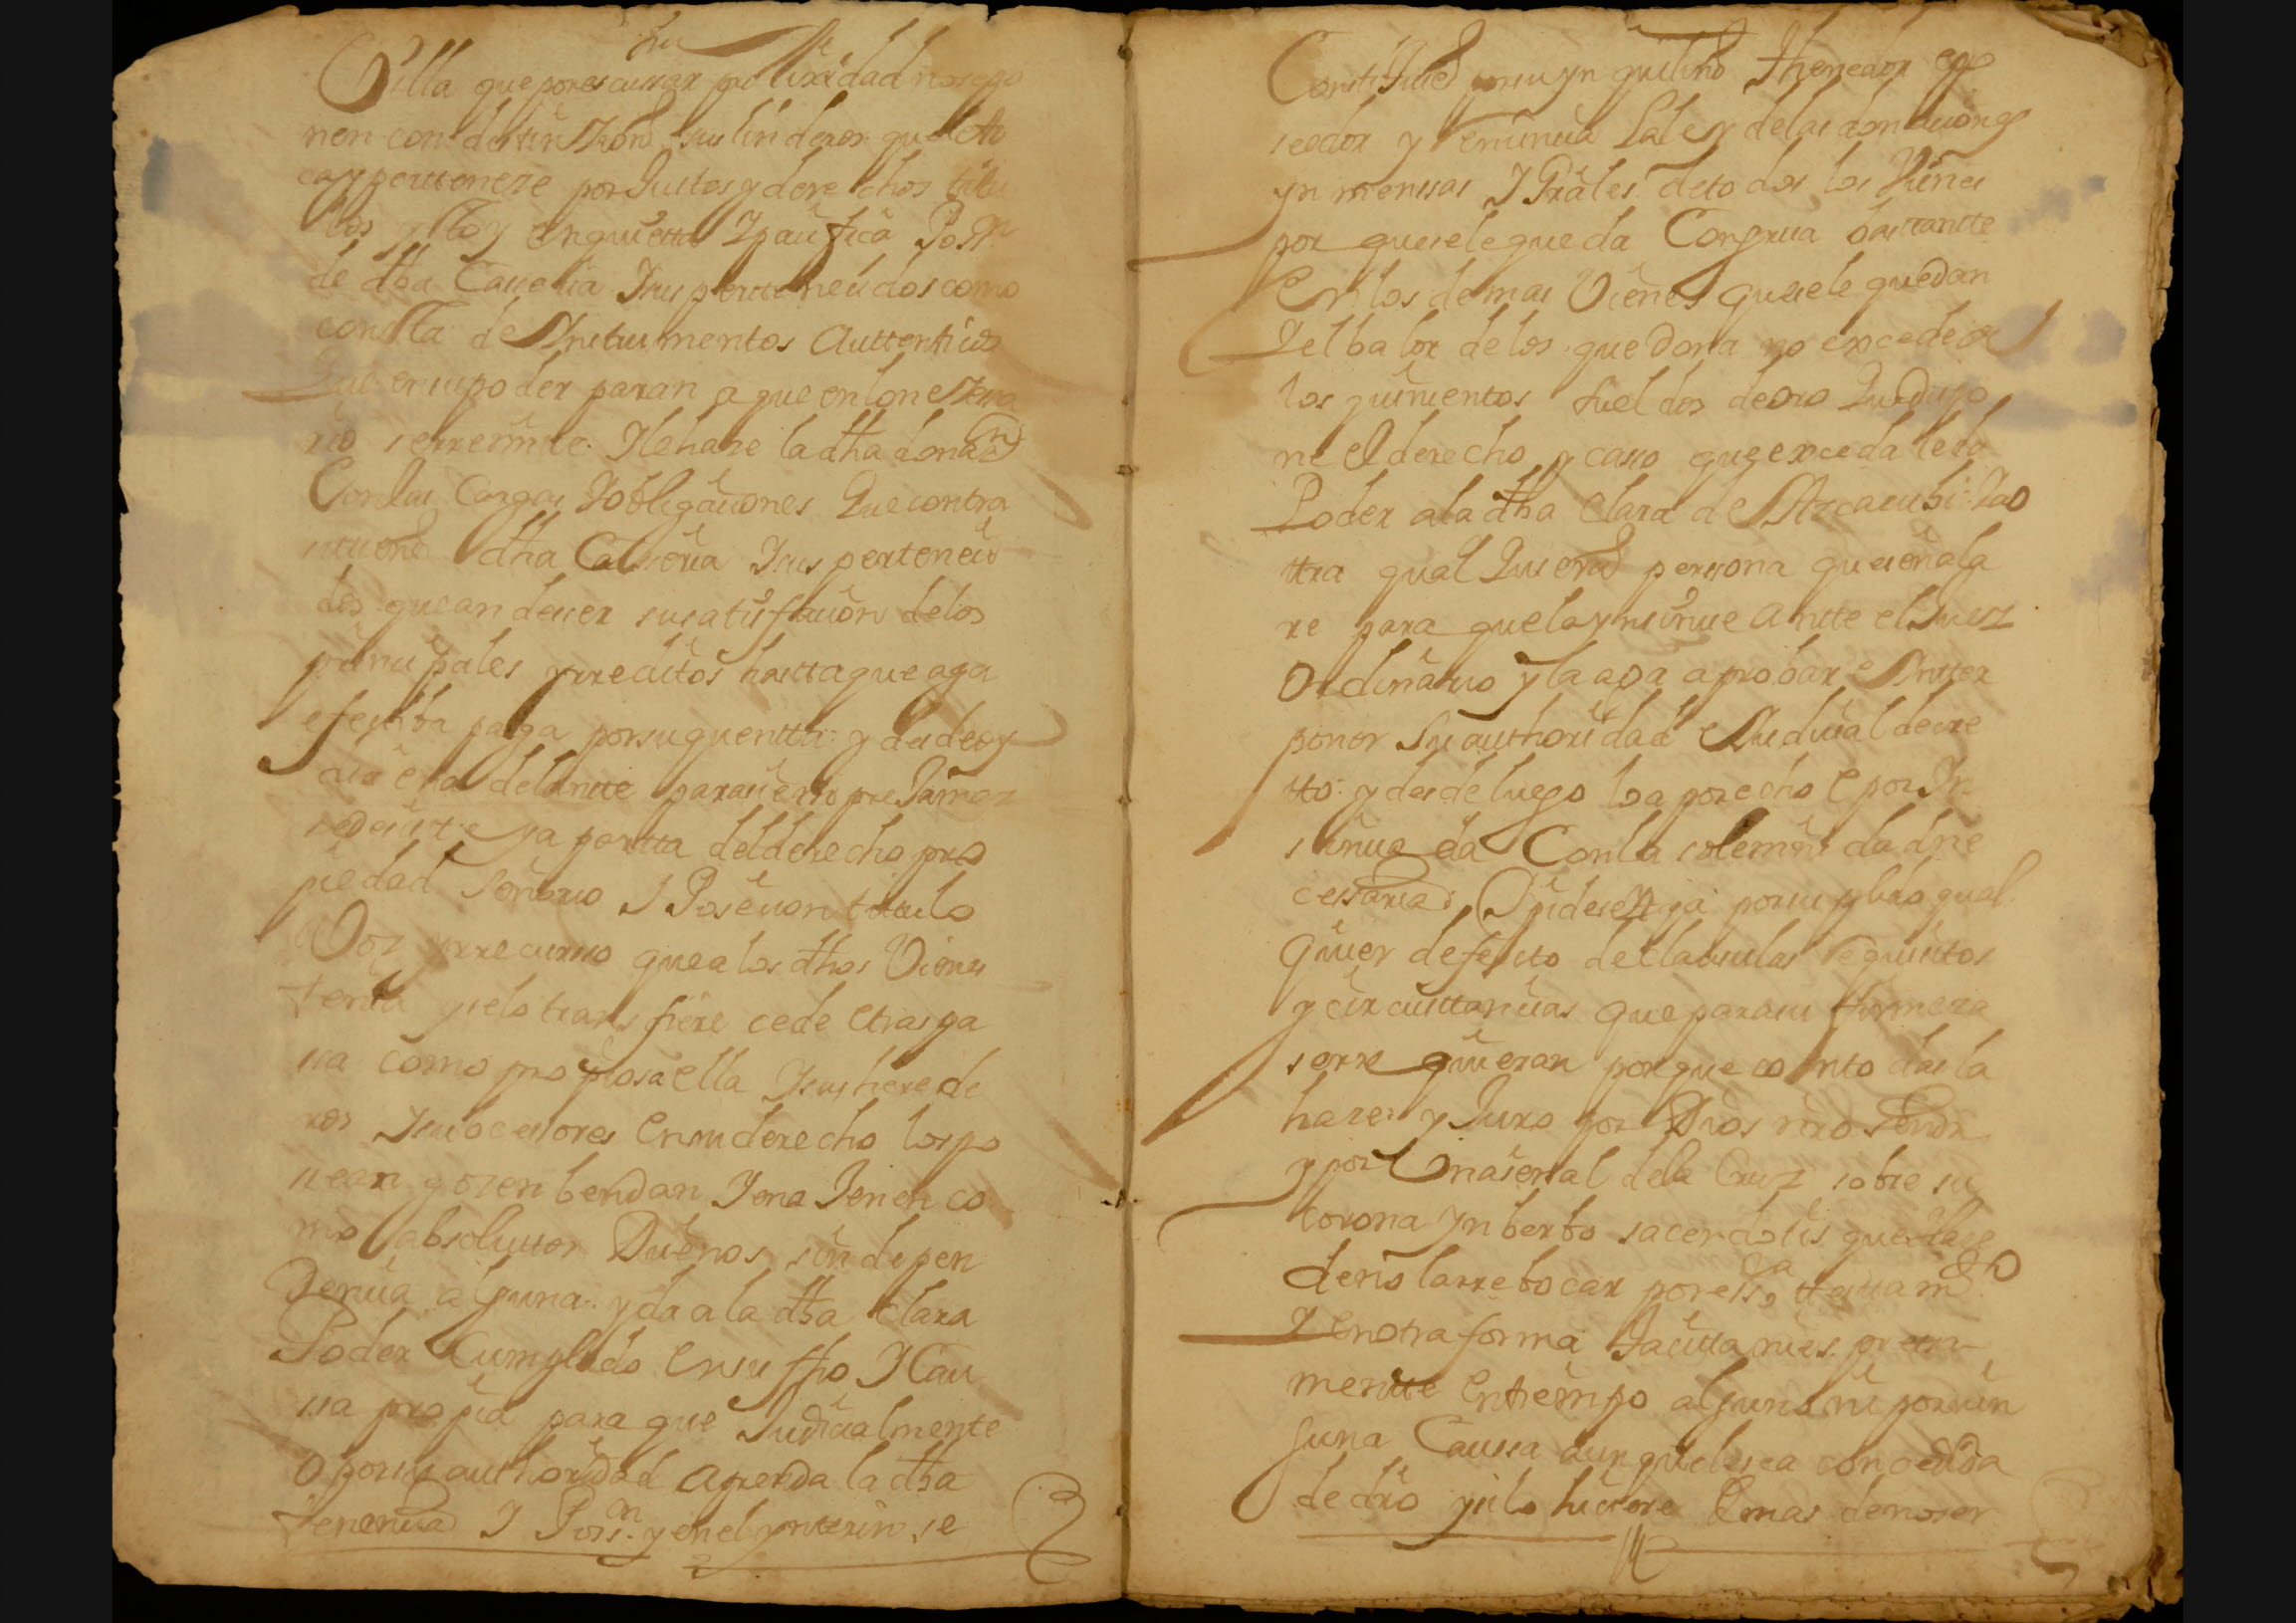 Villa que por escussar prolixidad no se po
nen con distinzion sus linderos que le to
ca y pertenese por Justos y derechos titu
los y esto y en quietta Y pacifica Poss.on
de dha Caseria Y sus pertteneçidos como
consta de Ynstrumentos Auttenticos
Que en su poder paran a que en lo nesesa
rio se rremite. Y le hase la dha donaz.n
Con las Cargas Y obligaçiones Que contra
si tiene dha Caseria Y sus perteneçi
dos que an de ser su satisfaçion de los
prinçipales y rreditos hasta que aga
efectiba paga por su quentta: y desde oy
dia en adelantte para siempre Jamas
se desiste y apartta del derecho pro
piedad señorio Y Poseçion titulo
Voz y rrecurso que a los dhos Vienes
tenia y se lo transfiere cede e traspa
sa como propios a ella Y sus herede
ros Y subcesores en su derecho los po
sean gosen bendan Y enaJenen co
mo absoluttos Dueños sin depen
dençia alguna. y da a la dha Clara
Poder Cumplido en su ffho Y Cau
sa propia para que Judiçialmente
O por su authoridad aprenda la dha
tenençia Y Poss.on y en el ynterin se
Constituie por su ynquilino thenedor e po
seedor y rrenunçia La ley de las donaçiones
ynmensas Y Grâles de todos los Vienes
por que se le queda Congrua bastantte
En los demas Vienes que se le quedan
Y el balor de los que dona no excede de
los quinientos sueldos de oro Que dispo
ne el derecho y caso que exceda le da
Poder a la dha Clara de Azcarubi Y a o
ttra qual Quiera persona que señala
re para que lo ynsinue antte el Juez
Ordinario y la aga aprobar e Ynter
poner su authoridad e Judiçial decre
tto: y desde luego lo a por echo e por Yn
sinuada Con la solemnidad ne
cessaria: Y pide se Supla por su ylido qual
quier defecto de clausulas requisitos
y circusttançias que para su firmesa
se rrequieran porque con todas la
hase: y Juro por Dios nro Señor
y por Una señal de la Cruz sobre su
corona yn berbo sacerdotis que hase
de no la rrebocar por ess.a ttesttam.to
Y en otra forma tacitta ni espresa
mentte en tiempo alguno ni por nin
guna Caussa aunque le sea conçedida
de dro y si lo hiciere demas de no ser